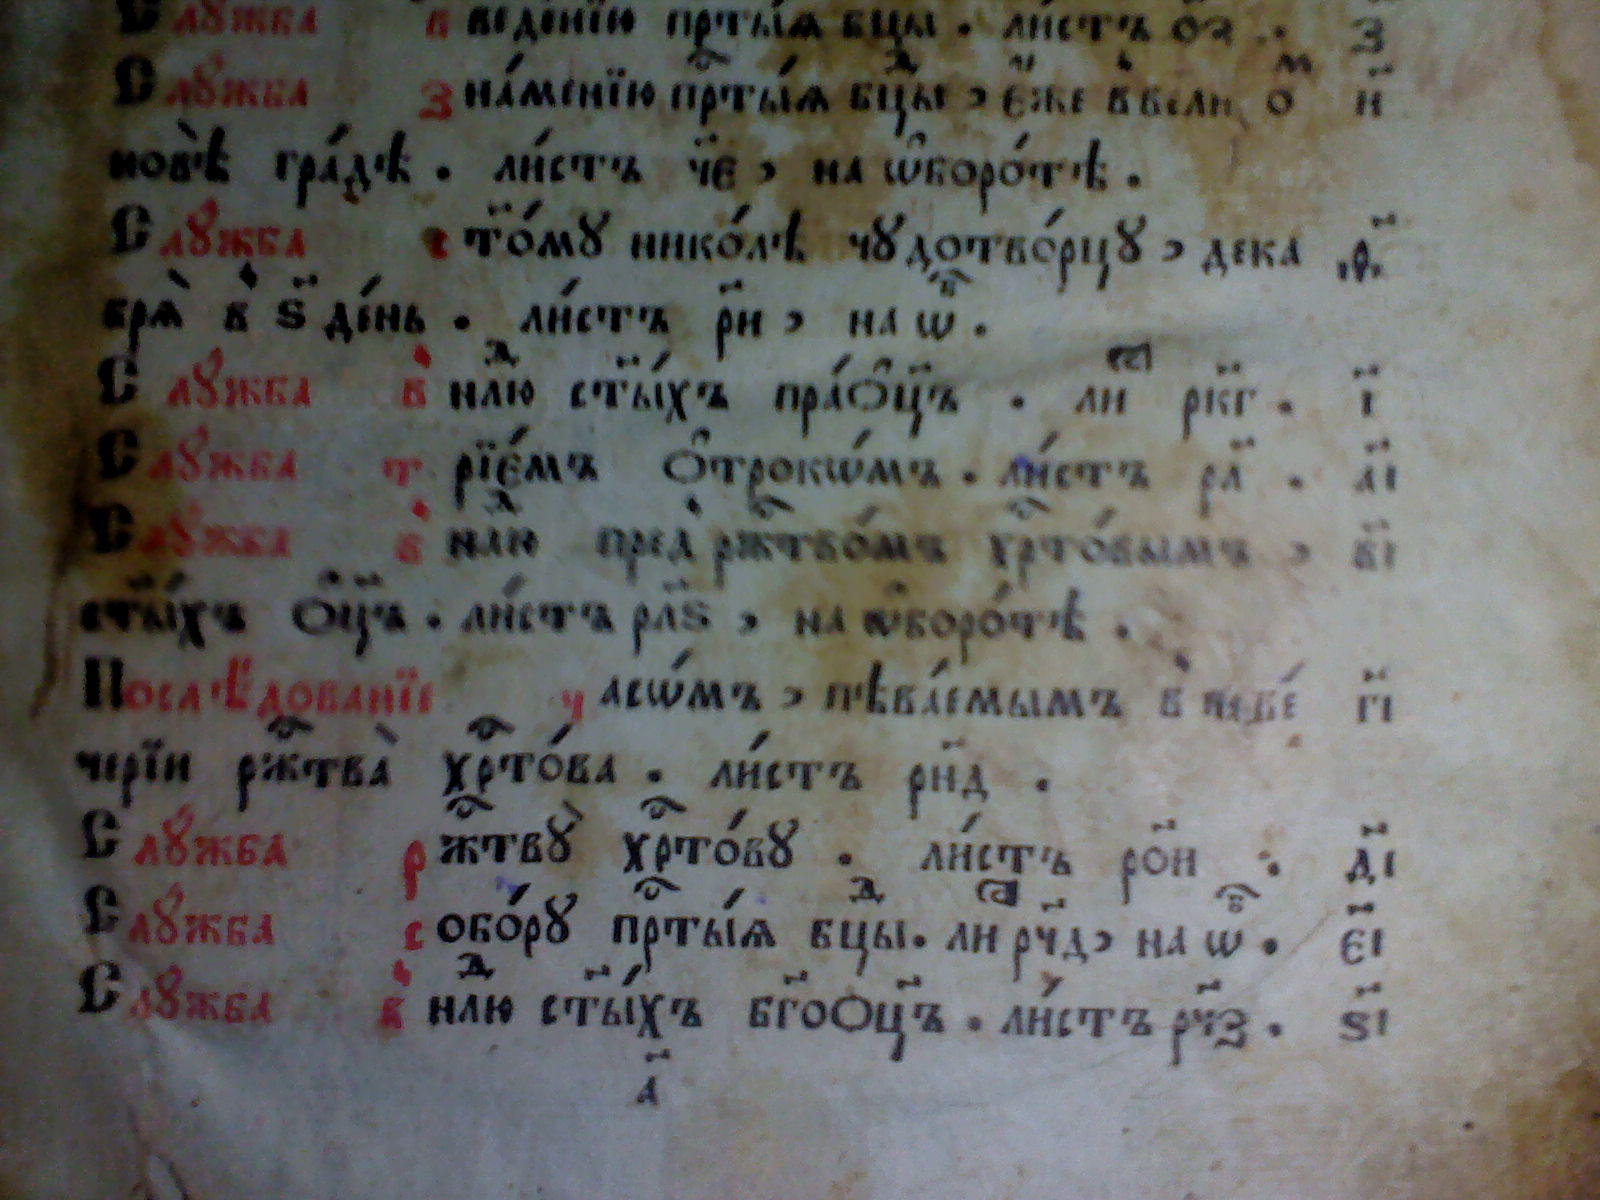 Слꙋжба введе́нїю прⷭ҇ты́ѧ бцⷣы . ли́стъ о҃з . з
Слꙋ́жба зна́менїю прⷭ҇ты́ѧ бцⷣы , є҆́же в вели о҃ м н҃
нове́ гра́дѣ . ли́стъ ч҃є , на ѡ҆боро́тѣ .
Слꙋ́жба ст҃о́мꙋ нико́лѣ чꙋдотво́рцꙋ , дека ѳ҃
брѧ̀ в ѕ҃ де́нь . ли́стъ рн҃ , на ѡⷠ҇ .
Слꙋ́жба в нлⷣю ст҃ы́хъ пра́ѻ҆ц҃ъ . лиⷭ҇ рк҃г . і҃
Слꙋ́жба трїє́мъ ѻ҆трокѡ́мъ . ли́стъ рл҃ . а҃і
Слꙋ́жба в нлⷣю пред̾ ржⷭ҇тво́мъ хрⷭ҇то́вымъ , в҃і
ст҃ы́хъ ѻ҆ц҃ъ . ли́стъ рл҃ѕ , на ѡ҆боро́тѣ .
Послѣ́дованїе часѡ́мъ , пѣва́емымъ в г҃і
черїи ржⷭ҇тва̀ хрⷭ҇то́ва . ли́стъ рн҃д .
Слꙋ́жба ржⷭ҇твꙋ̀ хрⷭ҇то́вꙋ . ли́стъ ро҃и . д҃і
Слꙋ́жба собо́рꙋ прⷭ҇ты́ѧ бцⷣы . лиⷭ҇ рч҃д , на ѡⷠ҇ . є҃і
Слꙋ́жба в нлⷣю ст҃ы́хъ бг҃оѻц҃ъ . ли́стъ рч҃з . ѕ҃і
а҃